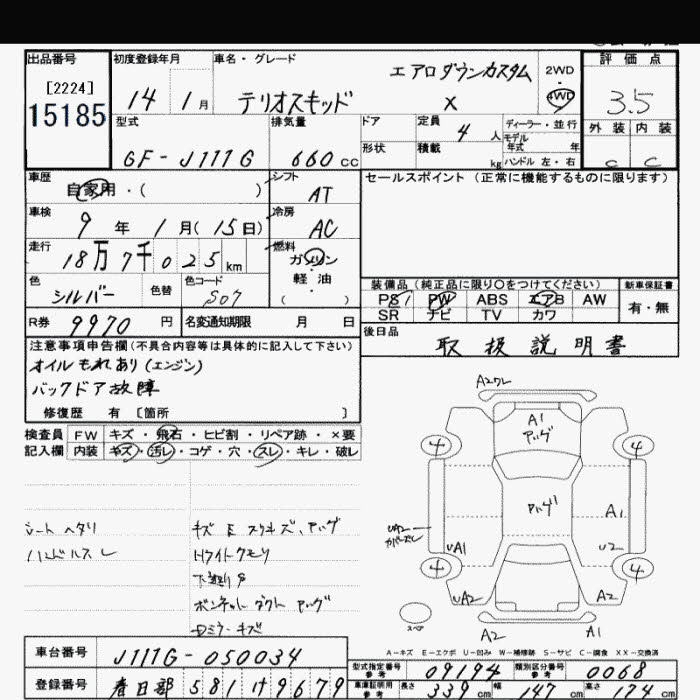 出品番号
[2224]
15185
初度登録年月
14 1月
車名・グレード
エアロダウンカスタム
テリオスキッド X
2WD
4WD
評価点
3.5
外装 内装
C C
型式
GF-J111G
排気量
660 CC
ドア
形状
定員 4 人
積載 kg
ディーラー・並行
モデル年式 年
ハンドル 左・右
車歴
自家用・( )
シフト
AT
セールスポイント (正常に機能するものに限ります)
車検
9年 1月(15日)
冷房
AC
走行
18万7千025km
燃料
ガソリン
軽油
( )
色
シルバー
色替
色コード
S07
装備品(純正品に限り○をつけてください)
PS PW ABS エアB AW
SR ナビ TV カワ
新車保証書
有・無
R券 9970 円
名変通知期限 月 日
後日品
取扱説明書
注意事項申告欄(不具合内容等は具体的に記入して下さい)
オイルもれあり(エンジン)
バックドア故障
修復歴 有 [箇所 ]
検査員
記入欄
FW キズ・飛石・ヒビ割・リペア跡・×要
内装 キズ・汚レ・コゲ・穴・スレ・キレ・破レ
シートヘタリ
ハンドルスレ
キズ E スリキズ、アハゲ
Hライトクモリ
下廻りサ
ボンネットダクト アハゲ
Dミラーキズ
A2ワレ
A1
アハゲ
4
4
アハゲ
UA2
カバーズレ
A1
UA1
U2
4
4
UA2
A2
スペア
A2
A1
A-キズ E-エクボ U-凹み W-補修跡 S-サビ C-腐食 XX-交換済
車台番号
J111G-050034
登録番号
春日部581け9679
型式指定番号
参考
09194
類別区分番号
参考
0068
車庫証明用
参考
長さ 339 cm
幅 147 cm
高さ 177 cm